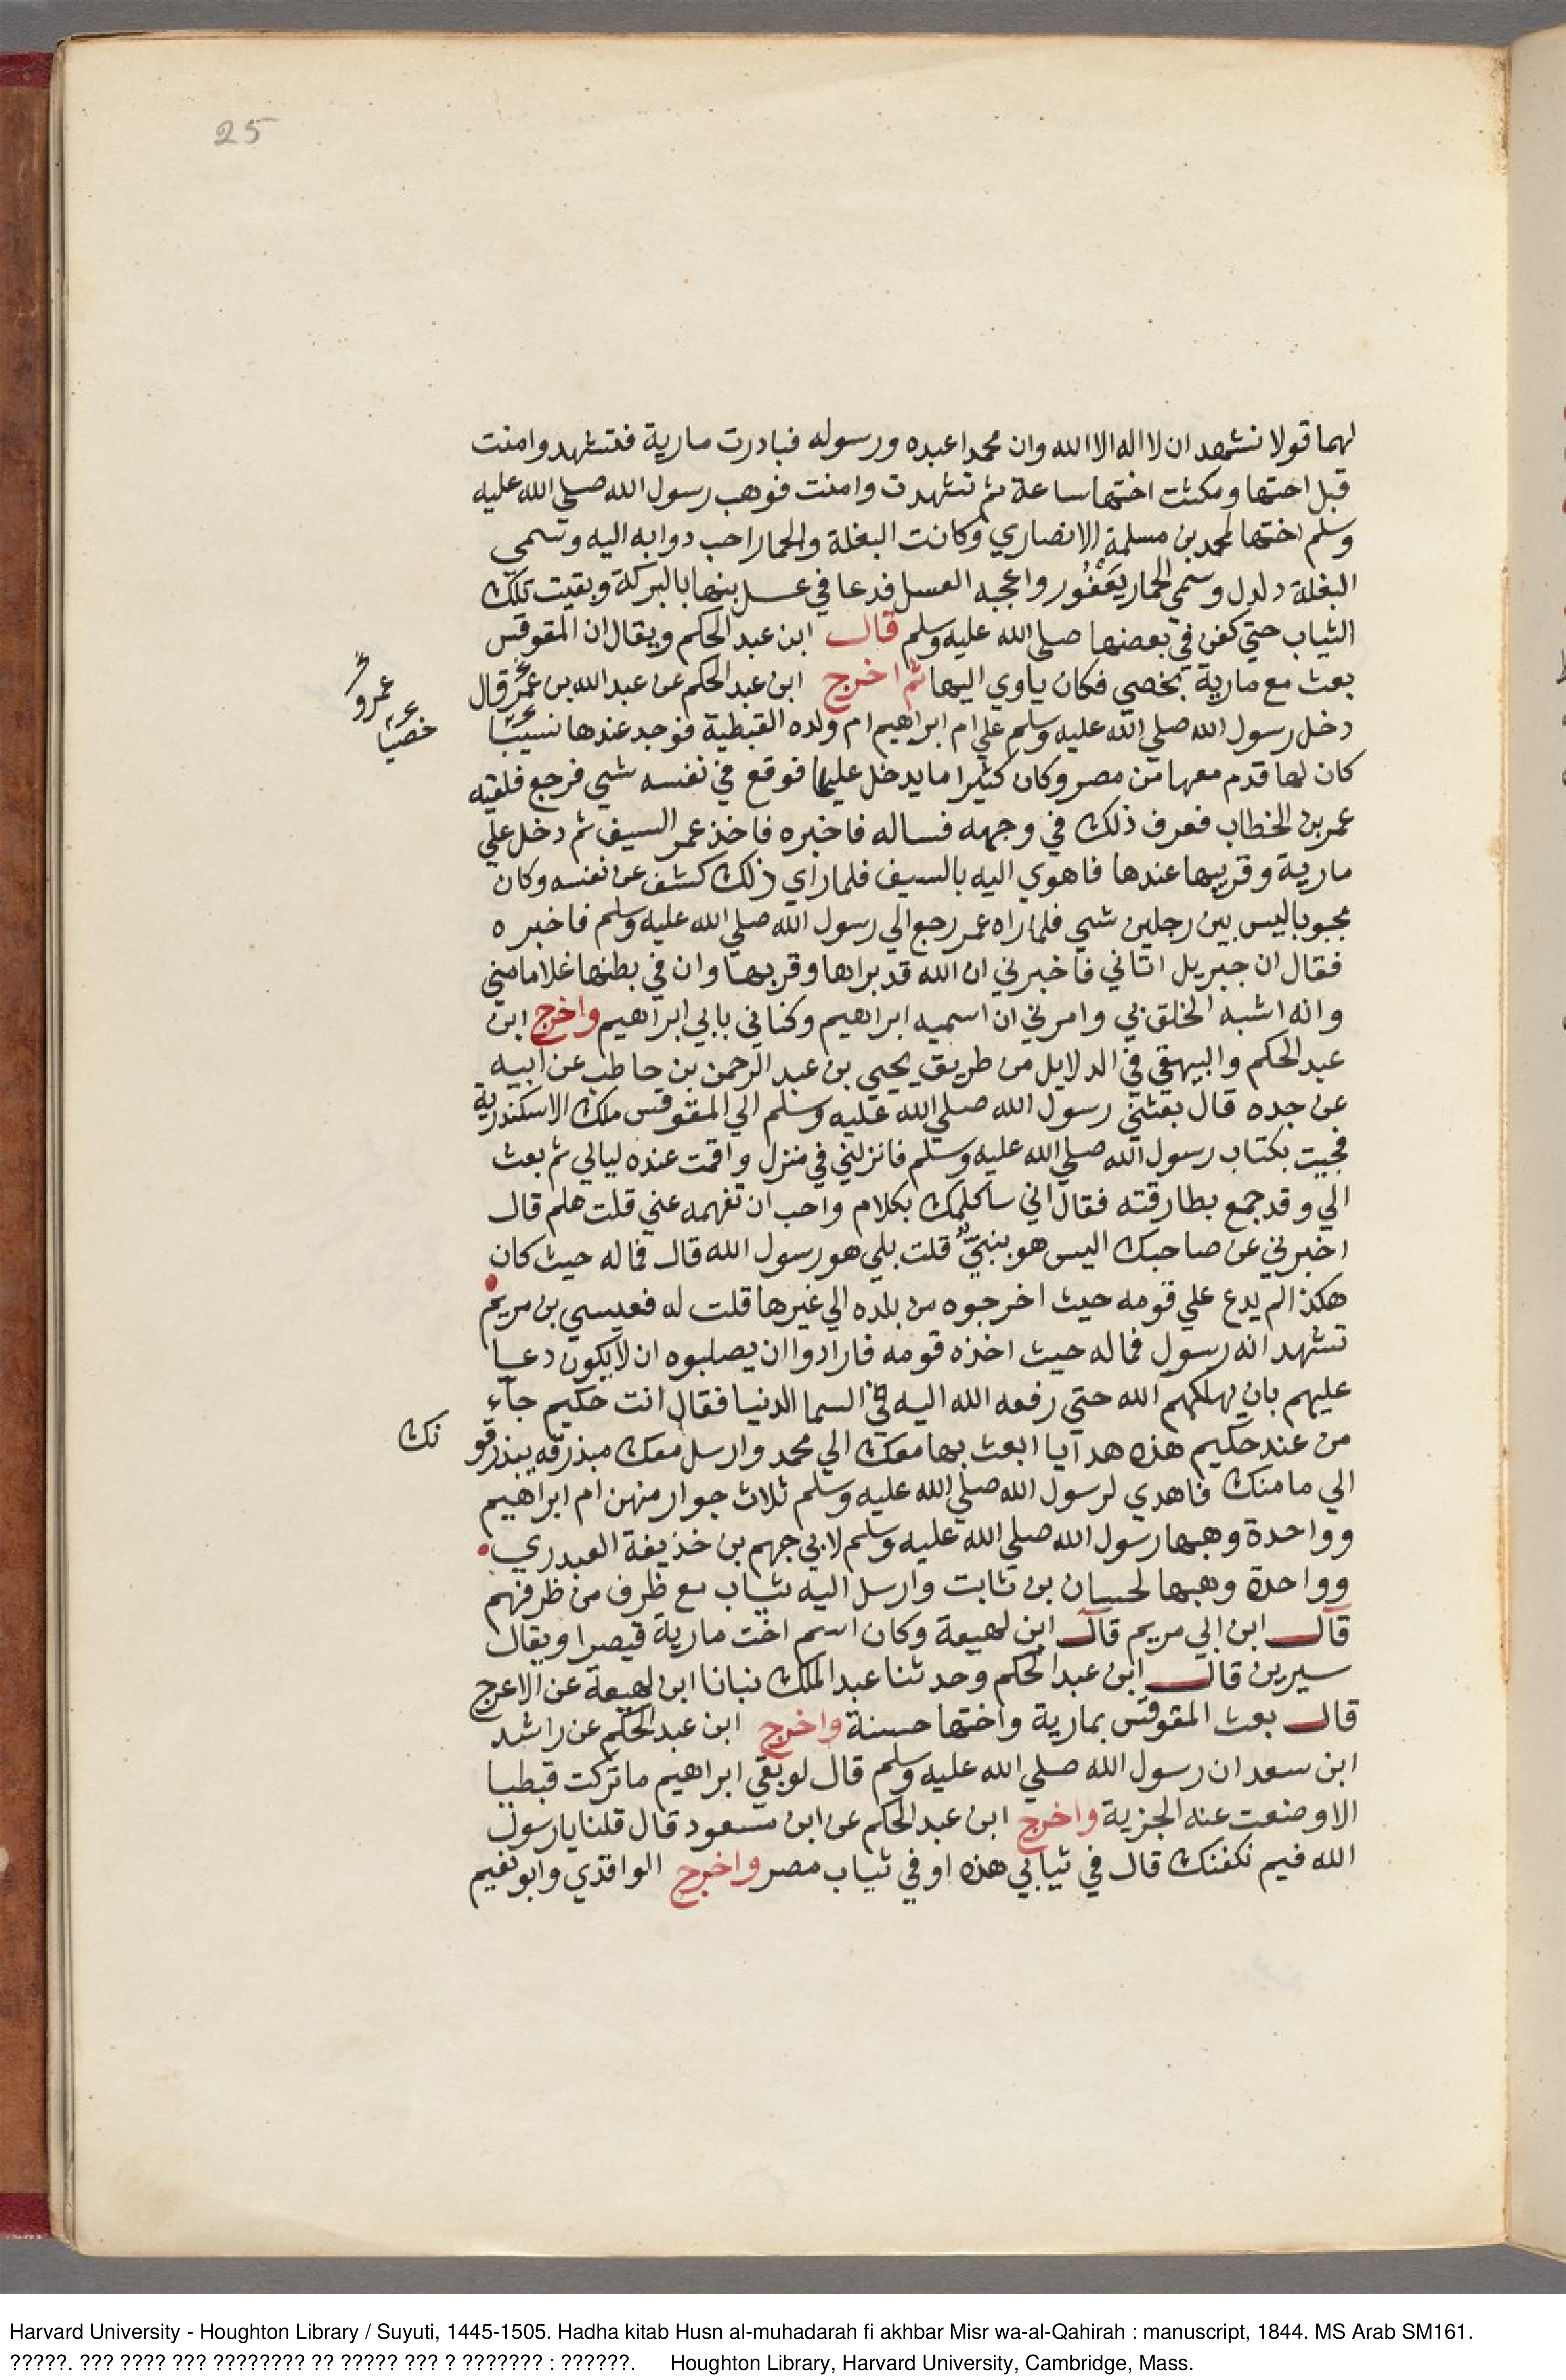 25
لهما قولا نشهد ان لا اله الا الله وان محمدا عبده ورسوله فبادرت مارية فتشهد وامنت
قبل اختها ومكثت اختها ساعة ثم تشهدت وامنت فوهب رسول الله صلي الله عليه
وسلم اختها لمحمد بن مسلمة الانصاري وكانت البغلة والحمار احب دوابه اليه وسمي
البغلة دلدل وسمي الحمار يَعْفُور واعجبه العسل فدعا في عسل بنها بالبركة وبقيت تلك
الثياب حتي كفن في بعضها صلي الله عليه وسلم قال ابن عبد الحكم ويقال ان المقوقس
بعث مع مارية بخصي فكان ياوي اليها ثم اخرج ابن عبد الحكم عن عبد الله بن عمر قال
عمرو
دخل رسول الله صلي الله عليه وسلم علي ام ابراهيم ام ولده القبطية فوجد عندها نسيبا
خصيا
كان لها قدم معها من مصر وكان كثيرا ما يدخل عليها فوقع في نفسه شي فرجع فلقيه
عمر بن الخطاب فعرف ذلك في وجهه فساله فاخبره فاخذ عمر السيف ثم دخل علي
مارية وقريبها عندها فاهوي اليه بالسيف فلما راي ذلك كشف عن نفسه وكان
مجبوبا ليس بين رجلين شي فلما راه عمر رجع الي رسول الله صلي الله عليه وسلم فاخبره
فقال ان جبريل اتاني فاخبرني ان الله قد براها وقربها وان في بطنها غلاما مني
وانه اشبه الخلق بي وامرني ان اسميه ابراهيم وكناني بابي ابراهيم واخرج ابن
عبد الحكم والبيهقي في الدلايل من طريق يحيي بن عبد الرحمن بن حاطب عن ابيه
عن جده قال بعثني رسول الله صلي الله عليه وسلم الي المقوقس ملك الاسكندرية
فجيت بكتاب رسول الله صلي الله عليه وسلم فانزلني في منزل واقمت عنده ليالي ثم بعث
الي وقد جمع بطارقته فقال اني ساكلمك بكلام واحب ان تفهمه عني قلت هلم قال
اخبرني عن صاحبك اليس هو بنبيٍّ قلت بلي هو رسول الله قال فما له حيث كان
هكذا لم يدع علي قومه حيث اخرجوه من بلده الي غيرها قلت له فعيسي بن مريم
تشهد انه رسول فما له حيث اخذه قومه فارادوا ان يصلبوه ان لا يكون دعا
عليهم بان يهلكهم الله حتي رفعه الله اليه في السما الدنيا فقال انت حكيم جاء
من عند حكيم هذه هدايا ابعث بها معك الي محمد وارسل معك مبذرقه يبذرقو
نك
الي مامنك فاهدي لرسول الله صلي الله عليه وسلم ثلاث جوار منهن ام ابراهيم
وواحدة وهبها رسول الله صلي الله عليه وسلم لابي جهم بن خذيفة العبدري
وواحدة وهبها لحسان بن ثابت وارسل اليه بثياب مع ظرف من ظرفهم
قال ابن ابي مريم قال ابن لهيعة وكان اسم اخت مارية قيصرا ويقال
سيرين قال ابن عبد الحكم وحدثنا عبد الملك نبانا ابن لهيعة عن الاعرج
قال بعث المقوقس بمارية واختها حسنة واخرج ابن عبد الحكم عن راشد
ابن سعد ان رسول الله صلي الله عليه وسلم قال لو بقي ابراهيم ما تركت قبطيا
الا وضعت عنه الجزية واخرج ابن عبد الحكم عن ابن مسعود قال قلنا يا رسول
الله فيم نكفنك قال في ثيابي هذه او في ثياب مصر واخرج الواقدي وابو نعيم
Harvard University - Houghton Library / Suyuti, 1445-1505. Hadha kitab Husn al-muhadarah fi akhbar Misr wa-al-Qahirah : manuscript, 1844. MS Arab SM161.
?????. ??? ???? ??? ???????? ?? ????? ??? ? ??????? : ??????. Houghton Library, Harvard University, Cambridge, Mass.